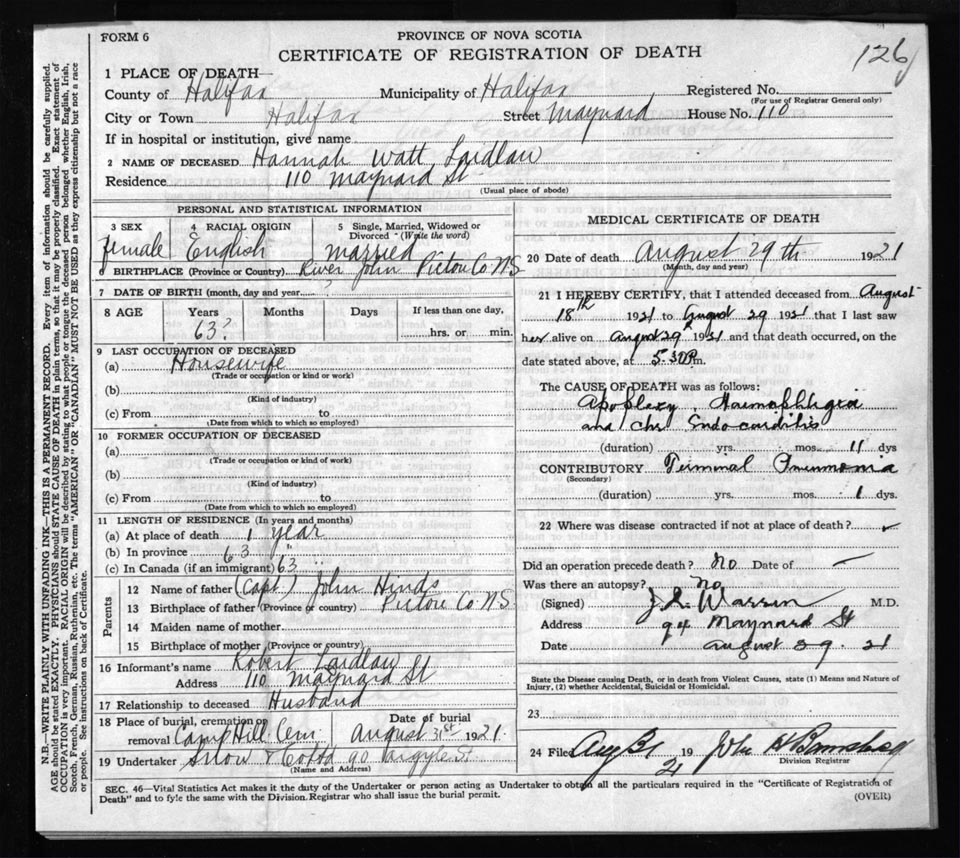 FORM 6
PROVINCE OF NOVA SCOTIA
CERTIFICATE OF REGISTRATION OF DEATH
126
1 PLACE OF DEATH—
County of Halifax Municipality of Halifax Registered No.
(For use of Registrar General only)
City or Town Halifax Street Maynard House No. 110
If in hospital or institution, give name
2 NAME OF DECEASED Hannah Watt Laidlaw
Residence 110 Maynard St
(Usual place of abode)
PERSONAL AND STATISTICAL INFORMATION
3 SEX 4 RACIAL ORIGIN 5 Single, Married, Widowed or Divorced (Write the word)
female English married
6 BIRTHPLACE (Province or Country) River John Pictou Co. NS
7 DATE OF BIRTH (month, day and year ?
8 AGE Years Months Days If less than one day,
63? hrs. or min.
9 LAST OCCUPATION OF DECEASED
(a) Housewife
(Trade or occupation or kind or work)
(b)
(Kind of industry)
(c) From to
(Date from which to which so employed)
10 FORMER OCCUPATION OF DECEASED
(a)
(Trade or occupation or kind of work)
(b)
(Kind of industry)
(c) From to
(Date from which to which so employed)
11 LENGTH OF RESIDENCE (In years and months)
(a) At place of death 1 year
(b) In province 63 "
(c) In Canada (if an immigrant) 63 "
Parents
12 Name of father (Capt) John Hinds
13 Birthplace of father (Province or country) Pictou Co NS
14 Maiden name of mother
15 Birthplace of mother (Province or country)
16 Informant's name Robert Laidlaw
Address 110 Maynard St
17 Relationship to deceased Husband
18 Place of burial, cremation or removal Camp Hill Cem Date of burial August 31st 1921
19 Undertaker Snow & 90 Argyle St
(Name and Address)
MEDICAL CERTIFICATE OF DEATH
20 Date of death August 29th 1921
(Month, day and year)
21 I HEREBY CERTIFY, that I attended deceased from August
18th 1921 to August 29 1921 that I last saw
her alive on August 29th 1921 and that death occurred, on the
date stated above, at 5.30 P.m.
The CAUSE OF DEATH was as follows:
Apoplexy,
and Chr Endo-carditis
(duration) yrs. mos. 11 dys
CONTRIBUTORY Terminal Pneumonia
(Secondary)
(duration) yrs. mos. 1 dys.
22 Where was disease contracted if not at place of death?
Did an operation precede death? No Date of
Was there an autopsy? No
(Signed) Warren M.D.
Address 94 Maynard St
Date August 29. 21
State the Disease causing Death, or in death from Violent Causes, state (1) Means and Nature of
Injury, (2) whether Accidental, Suicidal or Homicidal.
23
24 Filed Aug 31 1921 John
Division Registrar
SEC. 46—Vital Statistics Act makes it the duty of the Undertaker or person acting as Undertaker to obtain all the particulars required in the "Certificate of Registration of
Death" and to fyle the same with the Division Registrar who shall issue the burial permit.
(OVER)
N.B.—WRITE PLAINLY WITH UNFADING INK—THIS IS A PERMANENT RECORD. Every item of information should be carefully supplied.
AGE should be stated EXACTLY. PHYSICIANS should STATE CAUSE OF DEATH in plain terms, so that it may be properly classified. Exact statement of
OCCUPATION is very important. RACIAL ORIGIN will be described by stating to what people or tongue the deceased person belonged whether English, Irish,
Scotch, French, German, Russian, Ruthenian, etc. The terms "AMERICAN" OR "CANADIAN" MUST NOT BE USED as they express citizenship but not a race
or people. See instructions on back of Certificate.